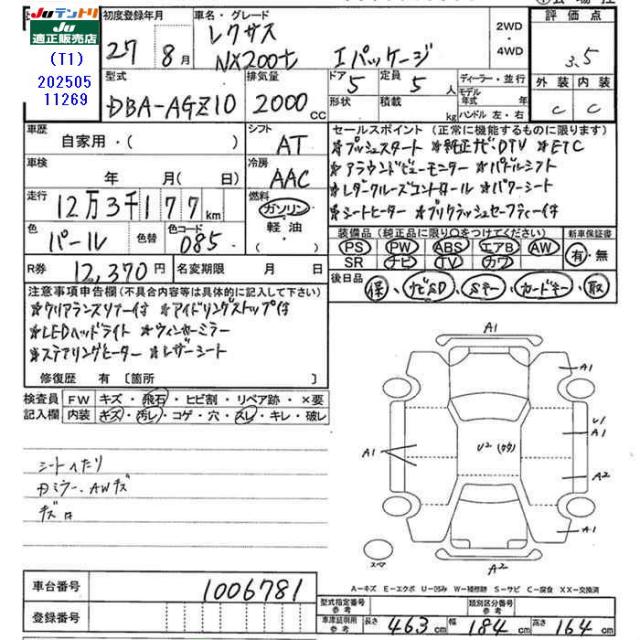 Juテントリ
Ju
適正販売店
(T1)
202505
11269
初度登録年月
27 8月
車名・グレード
レクサス
NX200t Iパッケージ
2WD
・
4WD
評価点
3.5
型式
DBA-AGZ10
排気量
2000cc
ドア
5
形状
定員
5人
積載
kg
ディーラー・並行
モデル
年式 年
ハンドル 左・右
外装 内装
C C
車歴
自家用・( )
シフト
AT
車検
年 月( 日)
冷房
AAC
走行
12万3千177km
燃料
ガソリン
軽油
・( )
色
パール
色替
色コード
085
R券
12,370円
名変期限 月 日
セールスポイント (正常に機能するものに限ります)
*プッシュスタート *純正ナビ、DTV *ETC
*アラウンドビューモニター *パドルシフト
*レダークルーズコントロール *パワーシート
*シートヒーター *プリクラッシュセーフティー付
装備品(純正品に限り○をつけてください)
新車保証書
PS PW ABS エアB AW
SR ナビ TV カワ
有・無
後日品
保、ナビSD、Sキー、カードキー、取
注意事項申告欄(不具合内容等は具体的に記入して下さい)
*クリアランスソナー付 *アイドリングストップ付
*LEDヘッドライト *ウィンカーミラー
*ステアリングヒーター *レザーシート
修復歴 有〔箇所 〕
検査員
記入欄
FW キズ・飛石・ヒビ割・リペア跡・×要
内装 キズ・汚レ・コゲ・穴・スレ・キレ・破レ
シートへたり
AWキズ
A1
A1
A1
U1
A1
U2
A2
A1
A2
A-キズ E-エクボ U-凹み W-補修跡 S-サビ C-腐食 XX-交換済
車台番号
1006781
登録番号
型式指定番号
参考
類別区分番号
参考
車庫証明用
参考
長さ 463cm 幅 184cm 高さ 164cm